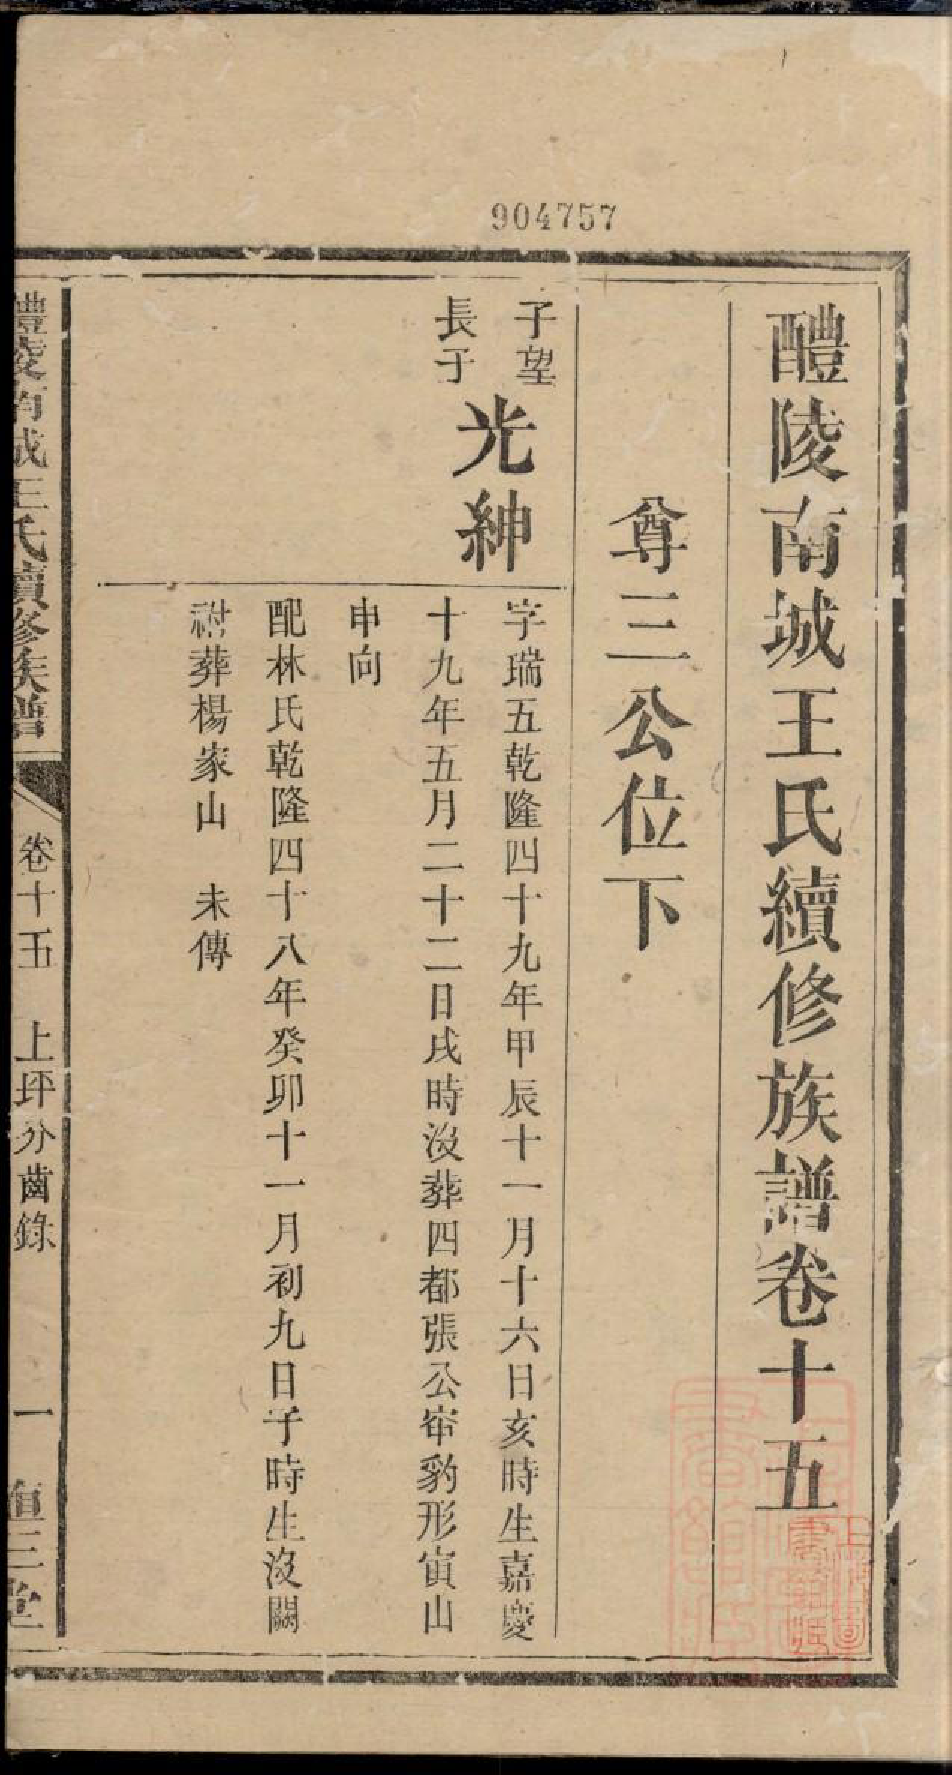 904757
醴陵南城王氏續修族譜卷十五
尊三公位下
望于
子長
光紳
字瑞五乾隆四十九年甲辰十一月十六日亥時生嘉慶
十九年五月二十二日戌時沒葬四都張公帘豹形寅山
申向
配林氏乾隆四十八年癸卯十一月初九日子時生沒闕
祔葬楊家山 未傳
醴陵南城王氏續修族譜 卷十五 上坪分齒錄 一 三堂